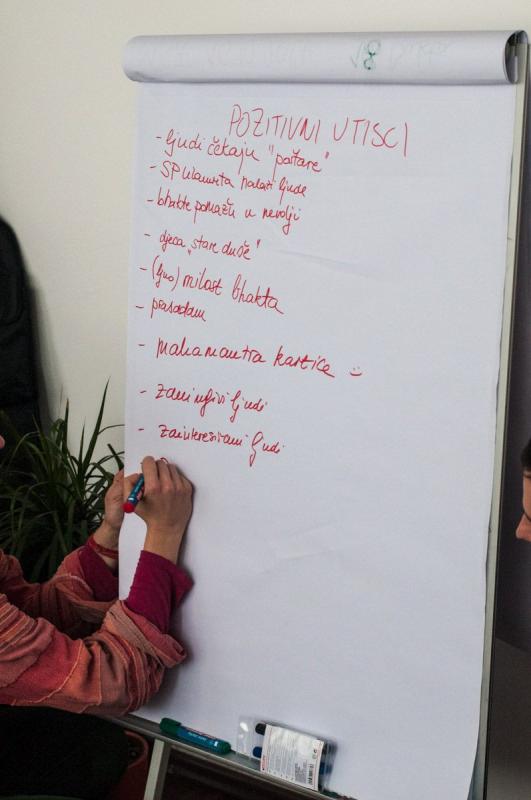 POZITIVNI UTISCI
- ljudi čekaju "poštare"
- SP ulamrta nalazi ljude
- bhakte pomažu u nevolji
- djeca „stare duše"
- (ljno) milost bhakta
- prasadam
- maha mantra kartice :)
- zanimljivi ljudi
- zainteresirani ljudi